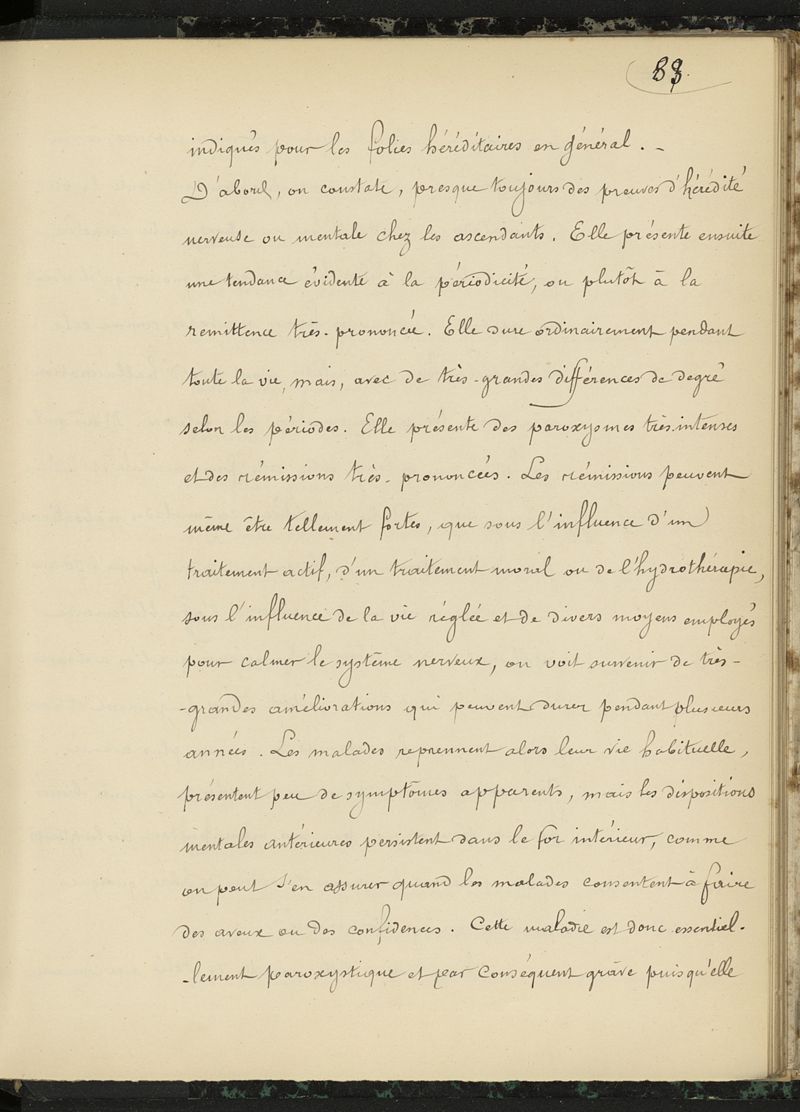 83.
indiqués pour les folies héréditaires en général. -
D'abord, on constate, presque toujours des preuves d'hérédité
nerveuse ou mentale chez les ascendants. Elle présente ensuite
une tendance évidente à la périodicité, ou plutôt à la
remittence très-prononcée. Elle dure ordinairement pendant
toute la vie, mais, avec de très-grandes différences de degré
selon les périodes. Elle présente des paroxysmes très-intenses
et des rémissions très-prononcées. Les rémissions peuvent
même être tellement fortes, que sous l'influence d'un
traitement actif, d'un traitement moral ou de l'hydrothérapie,
sous l'influence de la vie réglée et de divers moyens employés
pour calmer le système nerveux, on voit survenir de très-
-grandes améliorations qui peuvent durer pendant plusieurs
années. Les malades reprennent alors leur vie habituelle,
présentent peu de symptômes apparents, mais les dispositions
mentales antérieures persistent dans le for intérieur, comme
on peut s'en assurer quand les malades consentent à faire
des aveux ou des confidences. Cette maladie est donc essentiel-
-lement paroxystique et par conséquent grave puisqu'elle